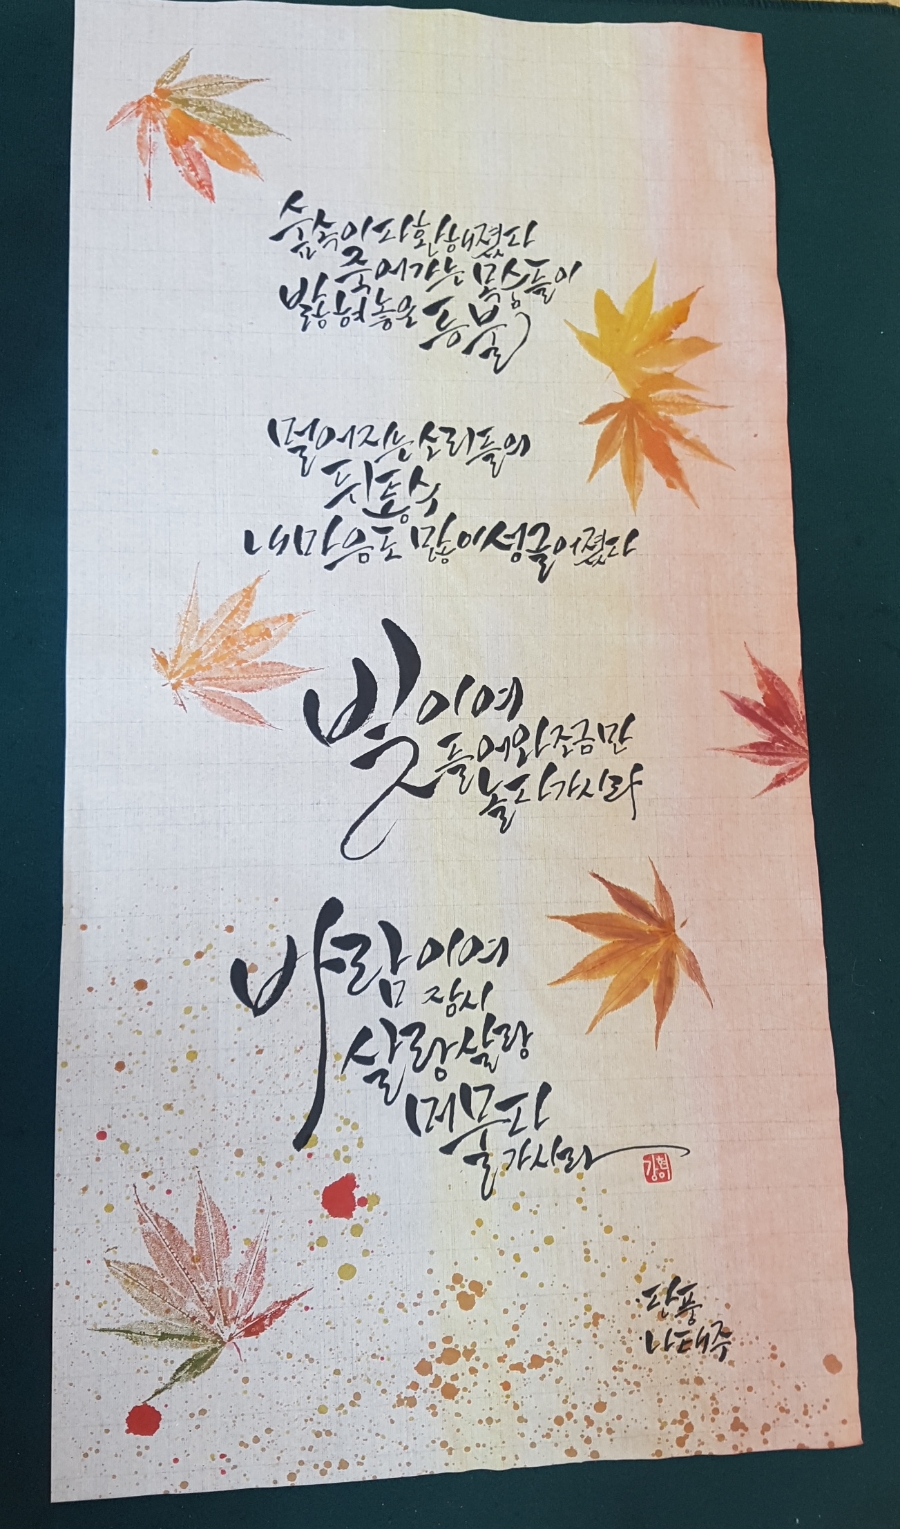 숲속이 다 환해졌다
죽어가는 목숨들이
밝혀놓은 등불
멀어지는 소리들의
뒤통수
내 마음도 많이 성글어졌다
빛이여
들어와 조금만
놀다 가시라
바람이여
잠시
살랑살랑
머물다
가시라
단풍
나태주